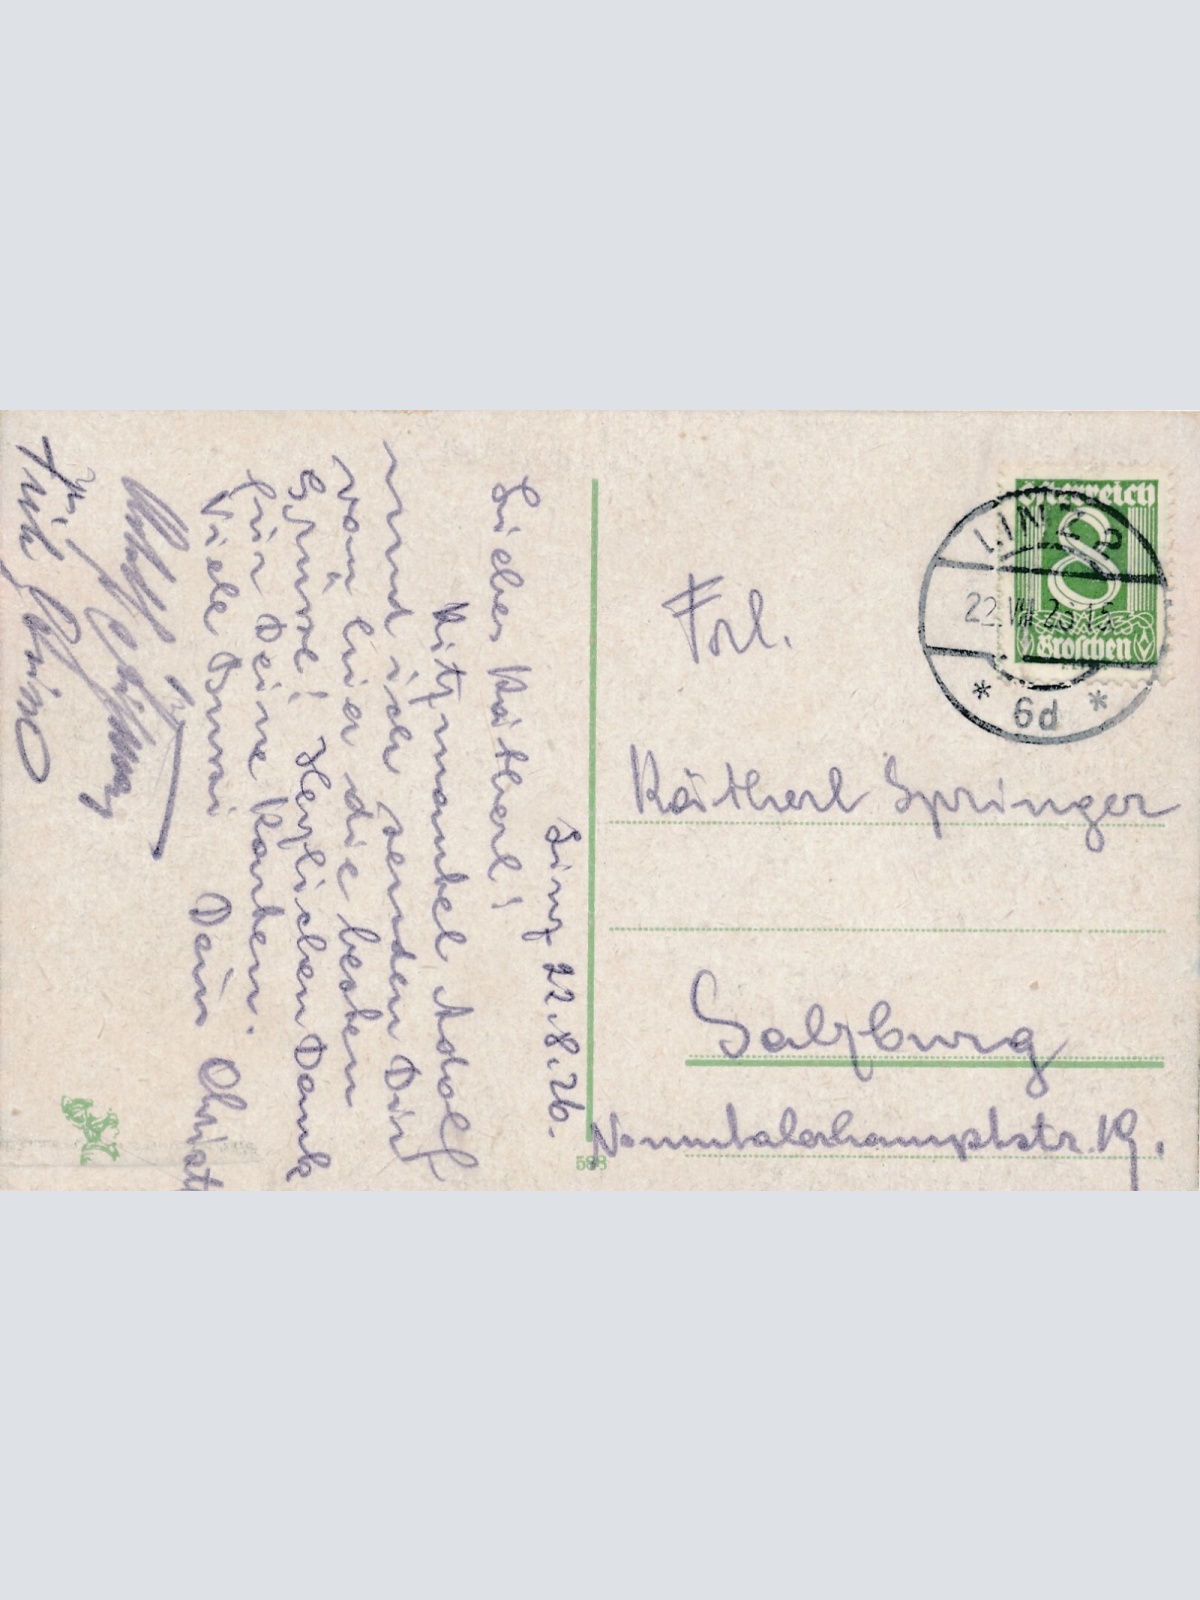 Linz 22.8.26.
Liebes Katherl!
Kitzmantel Adolf
und ich senden Dir
von hier die besten
Grüsse! Herzlichen Dank
für Deine Karten.
Viele Bussi Dein Christl
Österreich
8
Groschen
LINZ 2
22.VIII.26.15
* 6d *
Frl.
Kätherl Springer
Salzburg
Nonntalerhauptstr. 19.
588